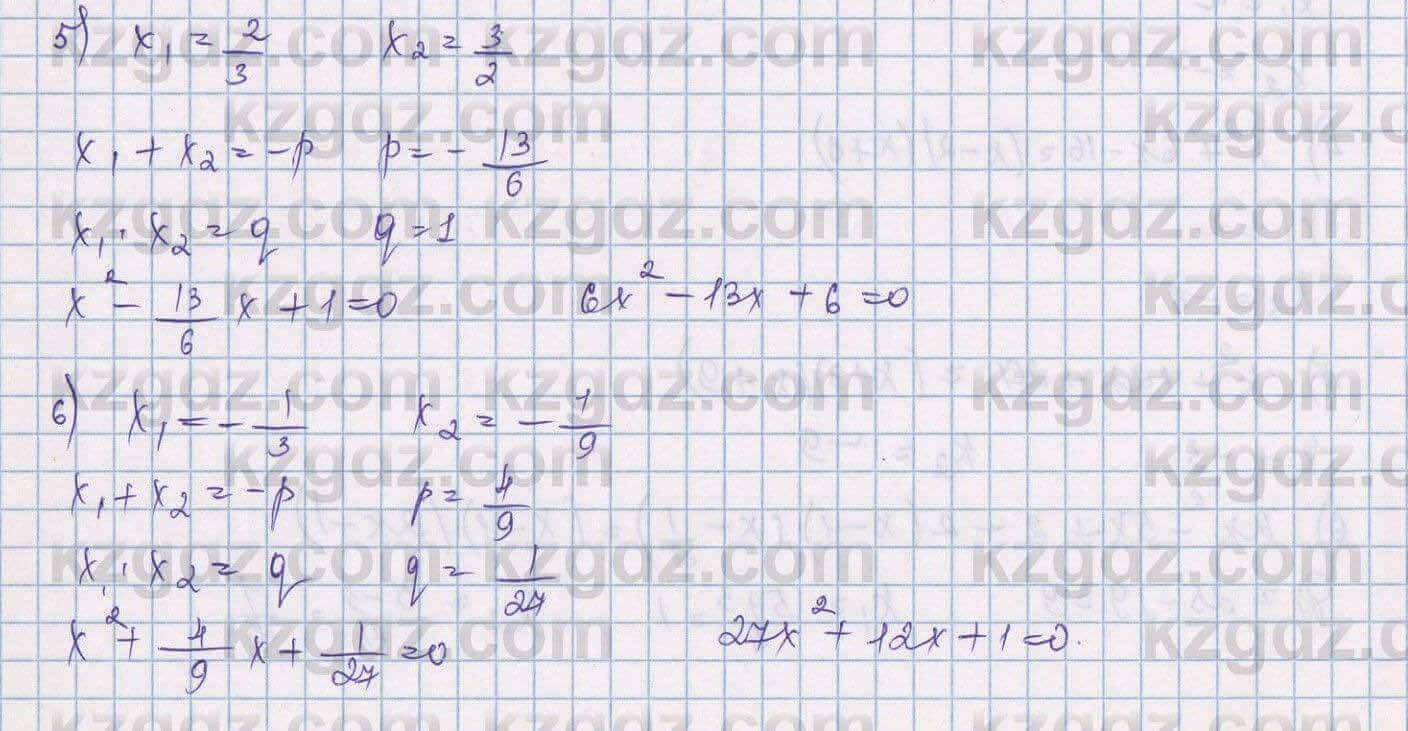 5) x₁ = 2/3 x₂ = 3/2
x₁ + x₂ = -p p = - 13/6
x₁ · x₂ = q q = 1
x² - 13/6 x + 1 = 0 6x² - 13x + 6 = 0
6) x₁ = - 1/3 x₂ = - 1/9
x₁ + x₂ = -p p = 4/9
x₁ · x₂ = q q = 1/27
x² + 4/9 x + 1/27 = 0 27x² + 12x + 1 = 0.